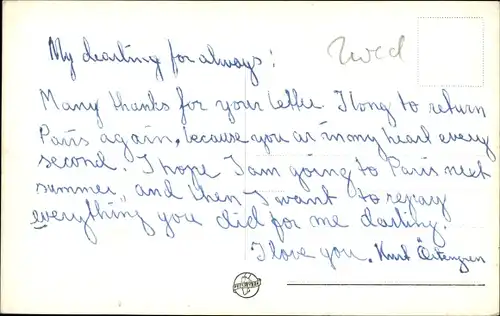 My dearling for always!
Many thanks for your letter. I long to return
Paris again, because you ar in my heart every
second. I hope I am going to Paris next
summer, and then I want to repay
"everything" you did for me darling.
I love you. Kurt